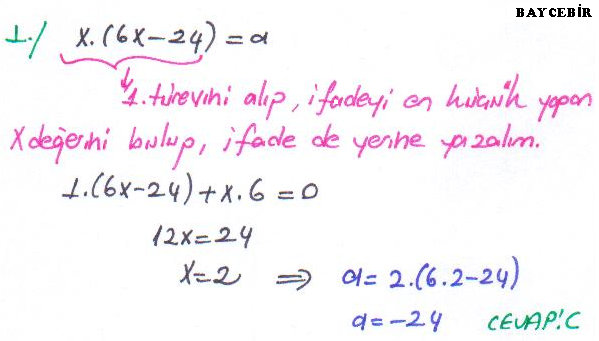 BAYCEBİR
1./ x.(6x-24)=a
1.türevini alıp, ifadeyi en küçük yapan
x değerini bulup, ifade de yerine yazalım.
1.(6x-24)+x.6=0
12x=24
x=2 ⇒ a=2.(6.2-24)
a=-24 CEVAP:C